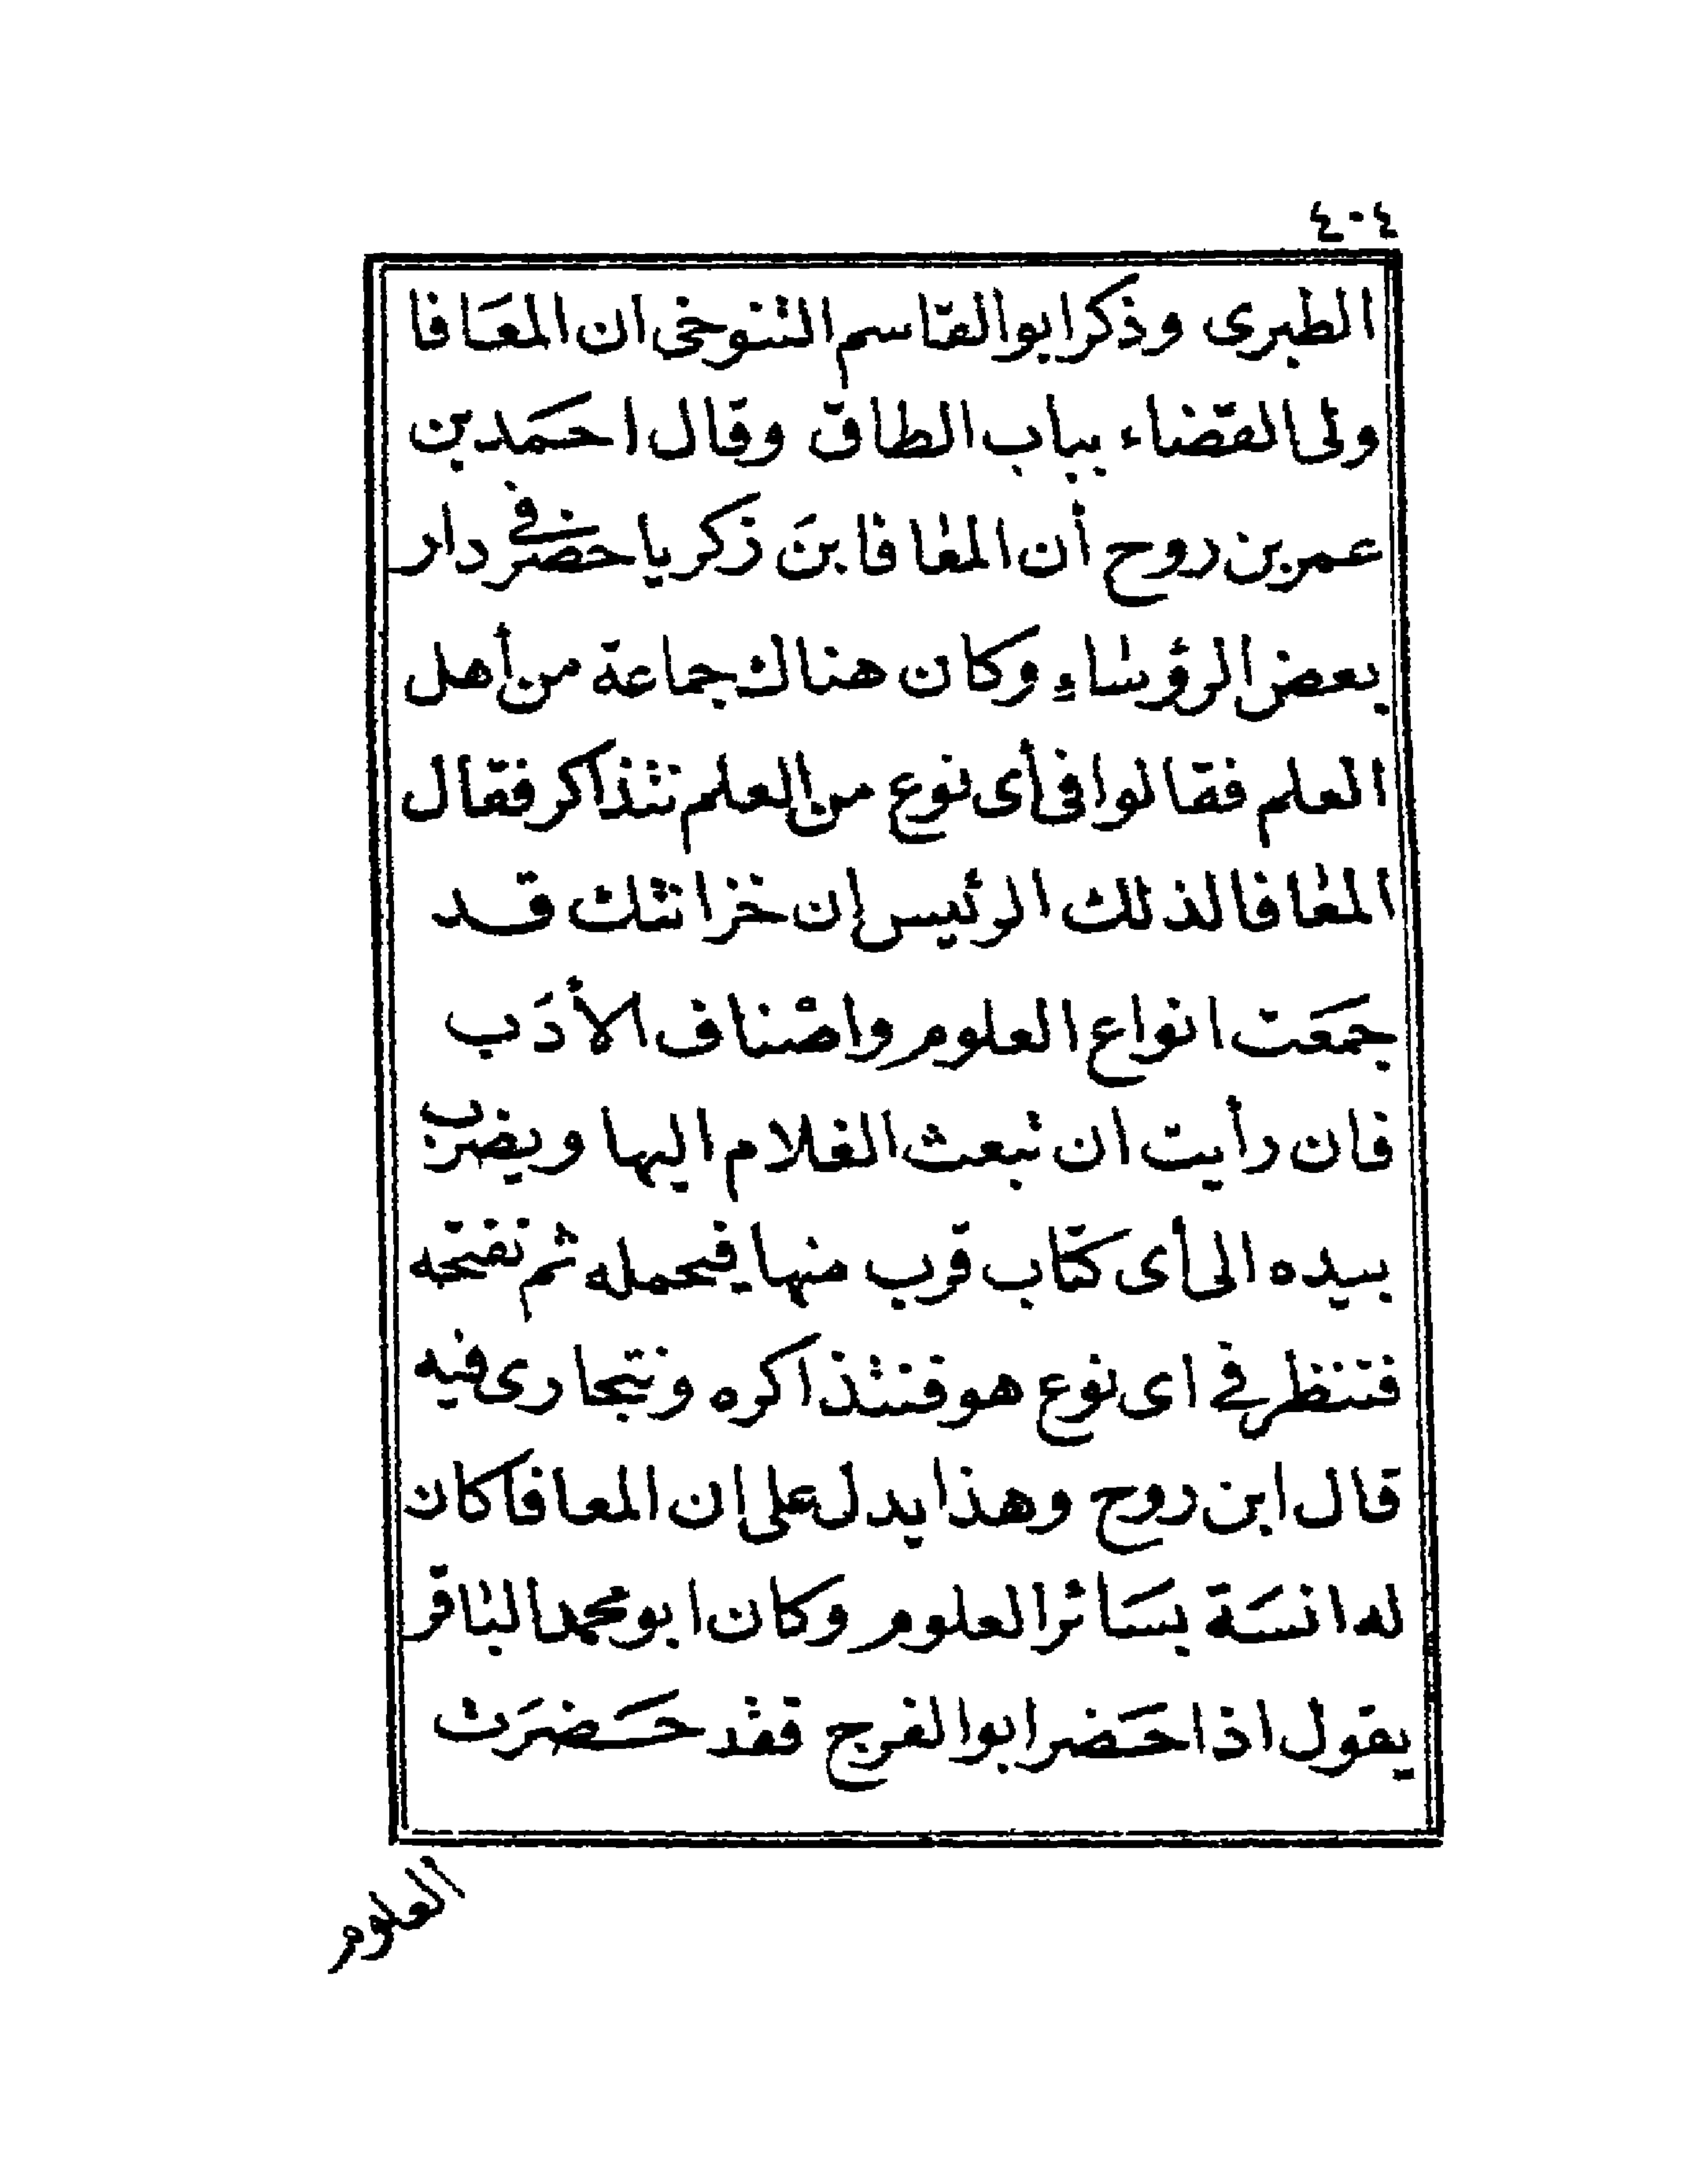 ٤٠٤
الطبرى وذكر ابو القاسم التنوخى ان المعَافا
ولى القضاء بباب الطاق وقال احمَد بن
عمر بن روح أن المعافا بنَ زكريا حضر في دار
بعض الرؤساءِ وكان هناك جماعة من أهل
العلم فقالوا فى أى نوع من العلم نتذاكر فقال
المعافا لذلك الرئيس إن خزانتك قد
جمَعَت انواع العلوم واصْناف الأدَب
فان رأيت ان تبعث الغلام اليها ويضرب
بيده الى أى كتاب قرب منها فيحمله ثم نفتحه
فتنظر في اى نوع هو فنتذاكره ونتجارى فيه
قال ابن روح وهذا يدل على ان المعافا كان
له انسَة بسَائر العلوم وكان ابو محمد الباقر
يقول اذا حَضر ابو الفرج فقد حَضرَت
العلوم